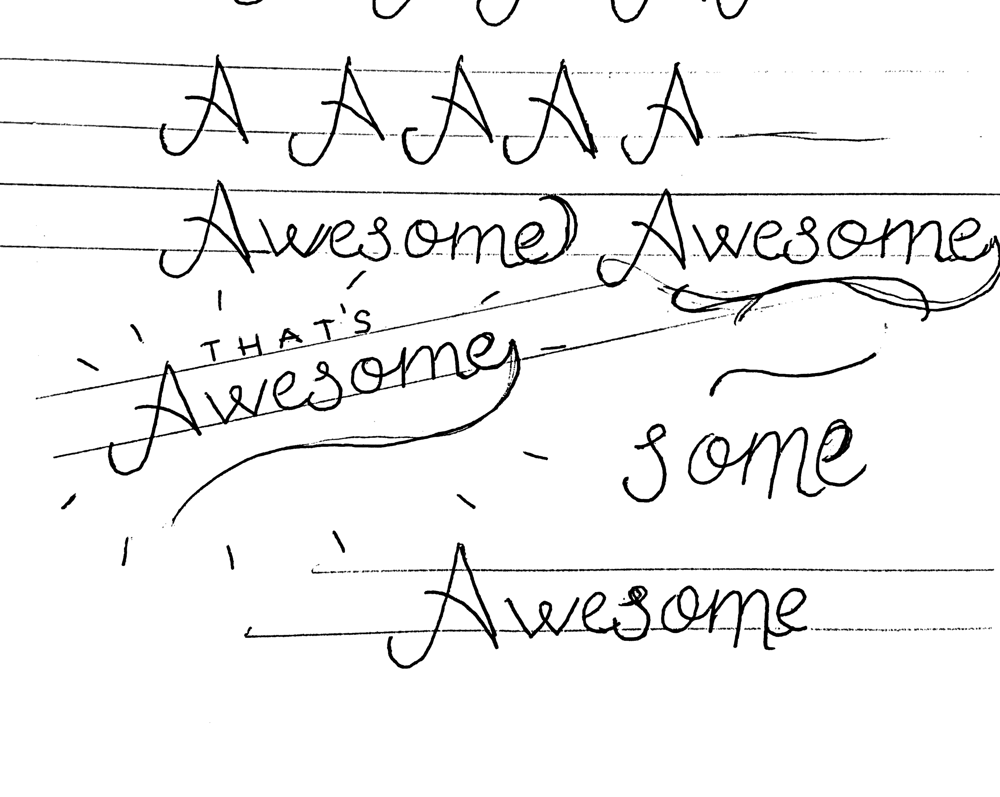 A A A A A
Awesome Awesome
THAT'S
Awesome
some
Awesome